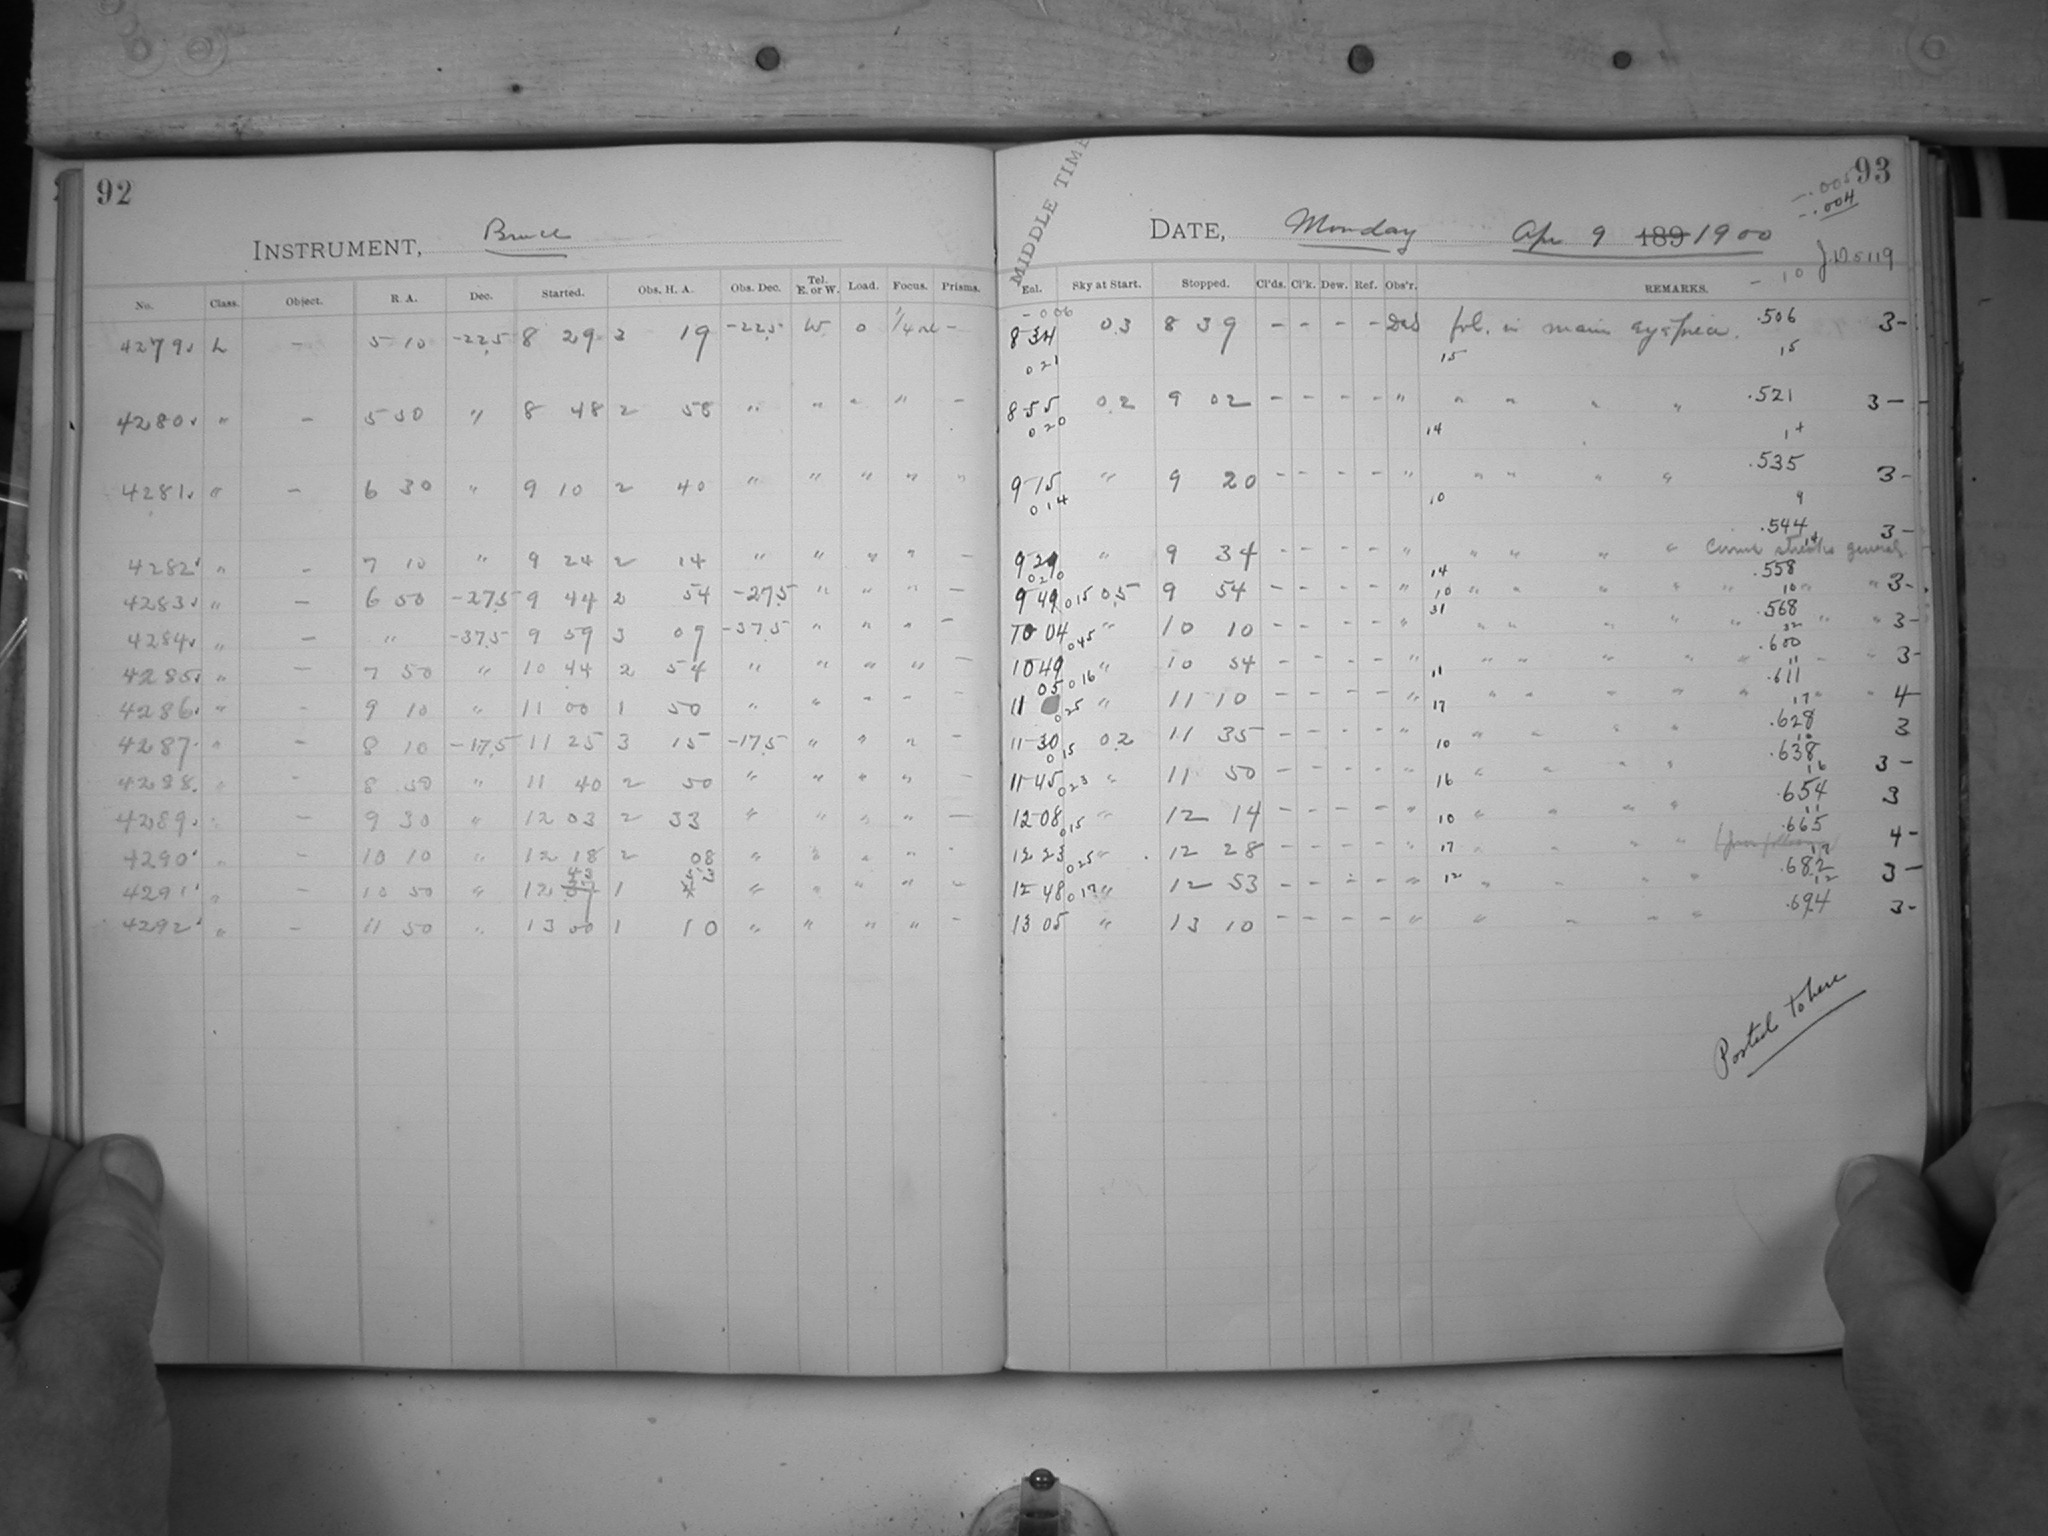 92
INSTRUMENT, Bruce
No. Class. Object. R. A. Dec. Started. Obs. H. A. Obs. Dec. Tel. E. or W. Load. Focus. Prisms.
4279 L – 5 10 –22.5 8 29 3 19 –22.5 W 0 –
4280 " – 5 50 " 8 48 2 58 " " " " –
4281 " – 6 30 " 9 10 2 40 " " " " "
4282 " – 7 10 " 9 24 2 14 " " " " –
4283 " – 6 50 –27.5 9 44 2 54 –27.5 " " " –
4284 " – " –37.5 9 59 3 09 –37.5 " " " –
4285 " – 7 50 " 10 44 2 54 " " " " –
4286 " – 9 10 " 11 00 1 50 " " " " –
4287 " – 8 10 –17.5 11 25 3 15 –17.5 " " " –
4288 " – 8 50 " 11 40 2 50 " " " " –
4289 " – 9 30 " 12 03 2 33 " " " " –
4290 " – 10 10 " 12 18 2 08 " " " " –
4291 " – 10 50 " 12 43 1 " " " " –
4292 " – 11 50 " 13 00 1 10 " " " " –
93
–.005
–.004
MIDDLE TIME
DATE, Monday Apr 9 189 1900
J.D. 5119
– 10
Sky at Start. Stopped. Cl'ds. Cl'k. Dew. Ref. Obs'r. REMARKS.
–006
8 34 0.3 8 39 – – – – fol. in main eyepiece. .506 3–
021 15 15
8 55 0.2 9 02 – – – – " " " " " .521 3–
020 14 14
9 15 " 9 20 – – – – " " " " " .535 3–
014 10 9
9 29 " 9 34 – – – – " " " " " .544 3–
Cirrus streaks general
020 14 14
9 49 0.5 9 54 – – – – " " " " " .558 3–
015 10 10
10 04 " 10 10 – – – – " " " " " .568 3–
045 31 32
10 49 " 10 54 – – – – " " " " " .600 3–
016 11 11
11 05 " 11 10 – – – – " " " " " .611 4–
025 17 17
11 30 0.2 11 35 – – – – " " " " " .628 3
015 10 10
11 45 " 11 50 – – – – " " " " " .638 3–
023 16 16
12 08 " 12 14 – – – – " " " " " .654 3
015 10 11
12 23 " 12 28 – – – – " " " " " .665 4–
025 17 17
12 48 " 12 53 – – – – " " " " " .682 3–
017 12 12
13 05 " 13 10 – – – – " " " " " .694 3–
Posted to here